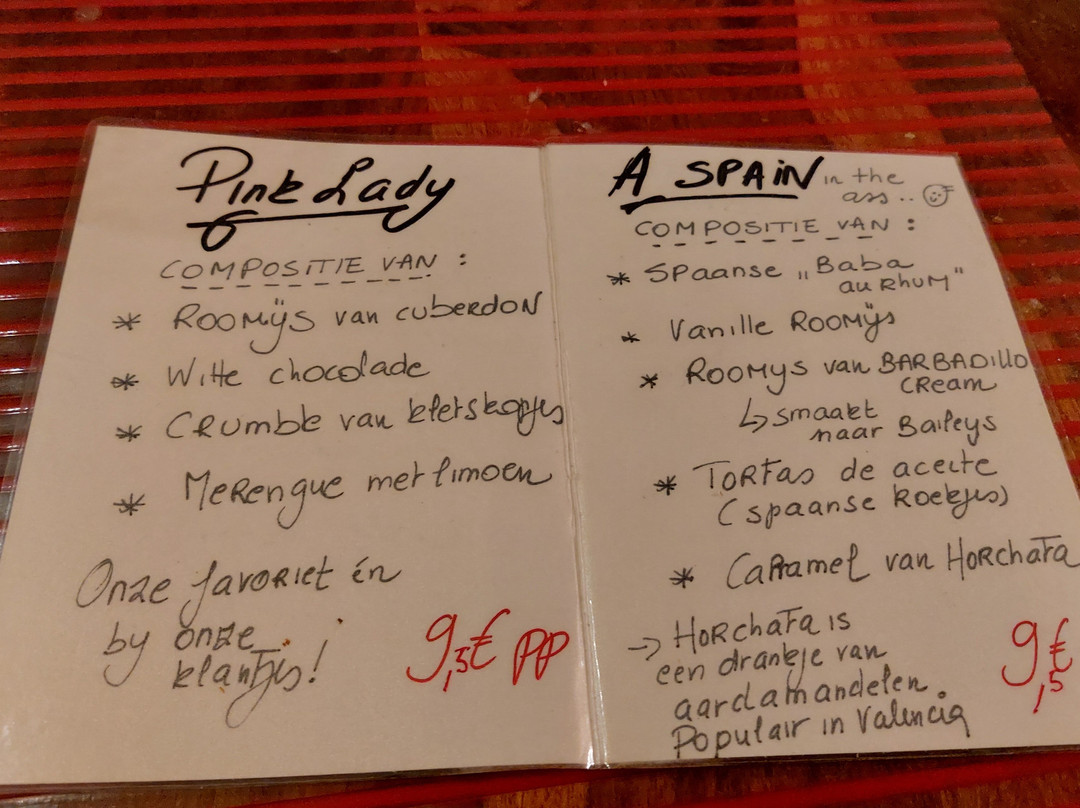 Pink Lady
COMPOSITIE VAN :
* ROOMijs van cuberdon
* Witte chocolade
* Crumble van kletskopjes
* Merengue met limoen
Onze favoriet én
by onze
klantjes!
9,5€ pp
A SPAIN in the
ass..
COMPOSITIE VAN :
* Spaanse „Baba
au Rhum"
* Vanille Roomijs
* Roomys van BARBADILLO
CReam
↳ smaakt
naar Baileys
* Tortas de aceite
(spaanse koekjes)
* Caramel van Horchata
→ Horchata is
een drankje van
aardamandelen.
Populair in Valencia
9,5€